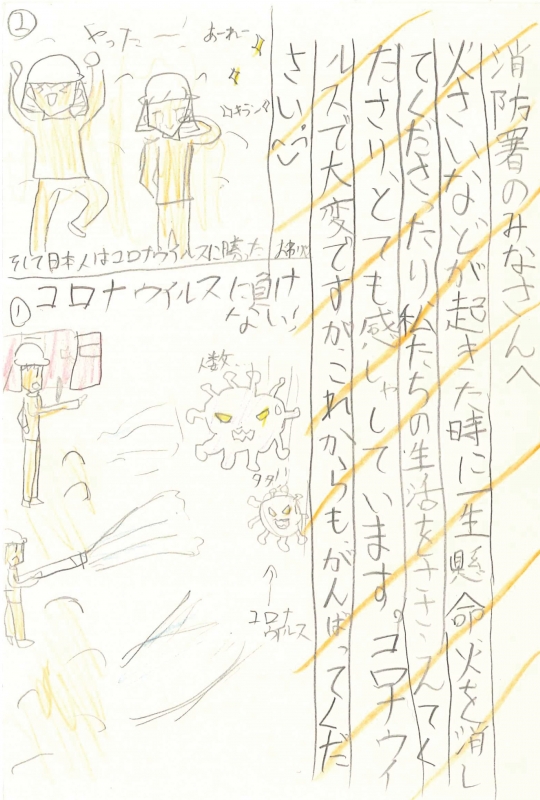 消防署のみなさんへ
火さいなどが起きた時に一生懸命火を消し
てくださったり、私たちの生活をささえてく
ださり、とても感しゃしています。コロナウイ
ルスで大変ですがこれからも、がんばってくだ
さい。
①
コロナウイルスに負け
ない!
コロナ
ウイルス
②
やったー!
あーれー
キラン
そして日本人はコロナウイルスに勝った